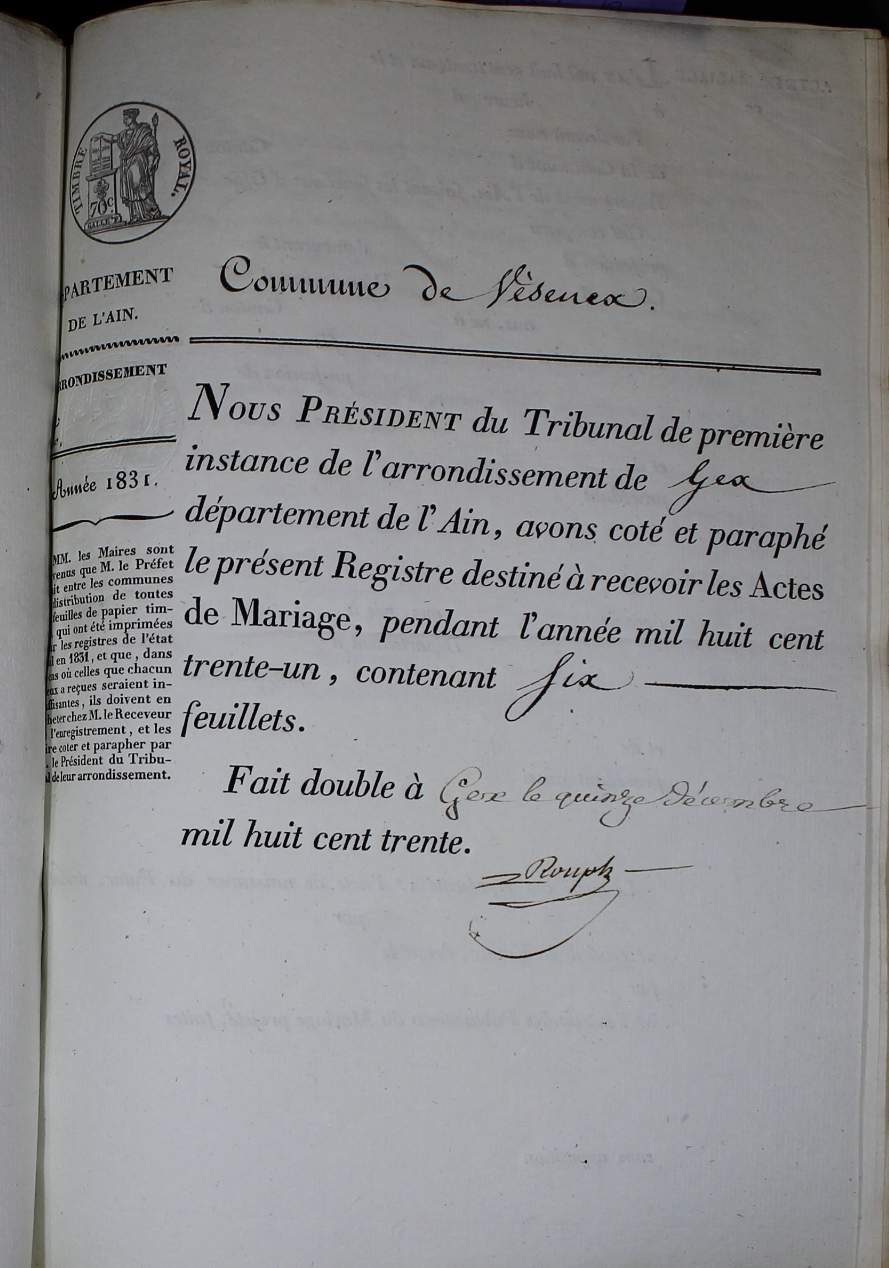 TIMBRE ROYAL.
70c
PARTEMENT
DE L'AIN.
RRONDISSEMENT
Année 1831.
MM. les Maires sont
venus que M. le Préfet
it entre les communes
distribution de toutes
feuilles de papier tim-
qui ont été imprimées
r les registres de l'état
l en 1831, et que, dans
as où celles que chacun
eux a reçues seraient in-
ffisantes, ils doivent en
heter chez M. le Receveur
l'enregistrement, et les
ire coter et parapher par
. le Président du Tribu-
l de leur arrondissement.
Commune de Vésenex.
NOUS PRÉSIDENT du Tribunal de première
instance de l'arrondissement de Gex
département de l'Ain, avons coté et paraphé
le présent Registre destiné à recevoir les Actes
de Mariage, pendant l'année mil huit cent
trente-un, contenant six
feuillets.
Fait double à Gex le quinze Décembre
mil huit cent trente.